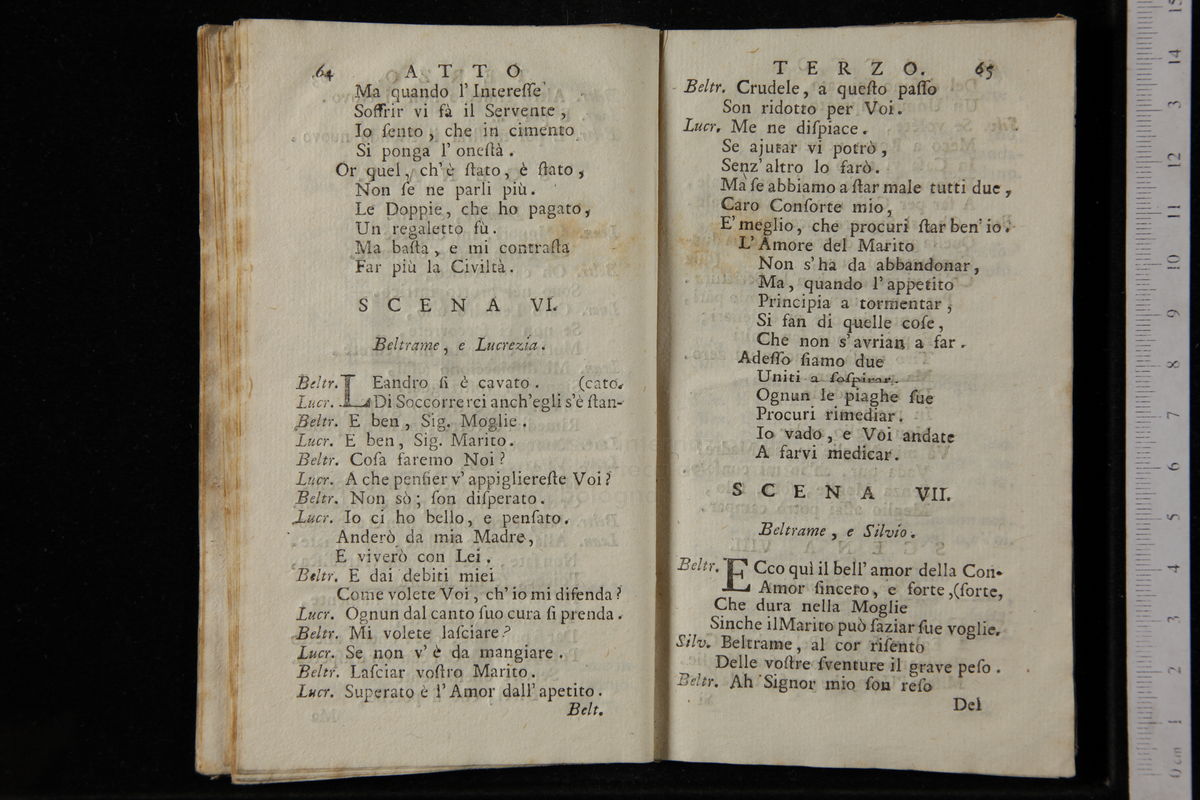 64 ATTO
Ma quando l'Intereſſe
Soffrir vi fà il Servente,
Io ſento, che in cimento
Si ponga l'oneſtà.
Or quel, ch'è ſtato, è ſtato,
Non ſe ne parli più.
Le Doppie, che ho pagato,
Un regaletto fù.
Ma baſta, e mi contraſta
Far più la Civiltà.
SCENA VI.
Beltrame, e Lucrezia.
Beltr. LEandro ſi è cavato. (cato.
Lucr. Di Soccorrerci anch'egli s'è ſtan-
Beltr. E ben, Sig. Moglie.
Lucr. E ben, Sig. Marito.
Beltr. Coſa faremo Noi?
Lucr. A che penſier v'appigliereſte Voi?
Beltr. Non sò; ſon diſperato.
Lucr. Io ci ho bello, e penſato.
Anderò da mia Madre,
E viverò con Lei.
Beltr. E dai debiti miei
Come volete Voi, ch'io mi difenda?
Lucr. Ognun dal canto ſuo cura ſi prenda.
Beltr. Mi volete laſciare?
Lucr. Se non v'è da mangiare.
Beltr. Laſciar voſtro Marito.
Lucr. Superato è l'Amor dall'apetito.
Belt.
TERZO. 65
Beltr. Crudele, a queſto paſſo
Son ridotto per Voi.
Lucr. Me ne diſpiace.
Se ajutar vi potrò,
Senz'altro lo farò.
Ma ſe abbiamo a ſtar male tutti due,
Caro Conſorte mio,
E' meglio, che procuri ſtar ben'io.
L'Amore del Marito
Non s'ha da abbandonar,
Ma, quando l'appetito
Principia a tormentar,
Si fan di quelle coſe,
Che non s'avrian a far.
Adeſſo ſiamo due
Uniti a ſoſpirar.
Ognun le piaghe ſue
Procuri rimediar.
Io vado, e Voi andate
A farvi medicar.
SCENA VII.
Beltrame, e Silvio.
Beltr. ECco quì il bell'amor della Con-
Amor ſincero, e forte,(ſorte,
Che dura nella Moglie
Sinche ilMarito può ſaziar ſue voglie.
Silv. Beltrame, al cor riſento
Delle voſtre ſventure il grave peſo.
Beltr. Ah Signor mio ſon reſo
Del